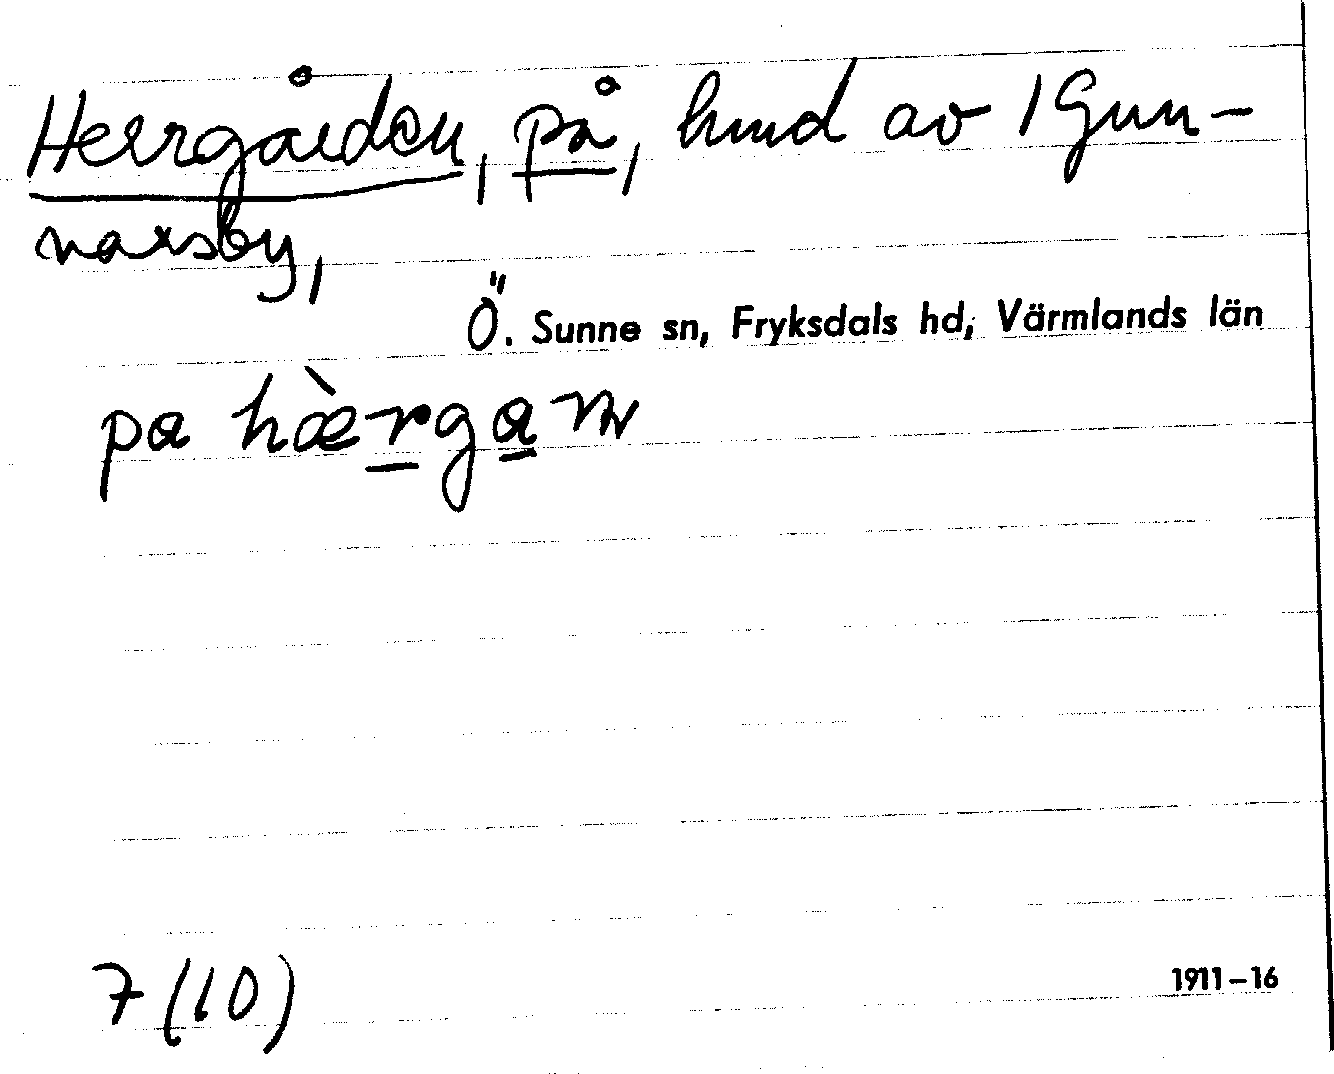 Herrgården, på, hmd av 1 Gun-
narsby,
Ö. Sunne sn, Fryksdals hd, Värmlands län
pa hæ̀rgan
7 (10)
1911–16